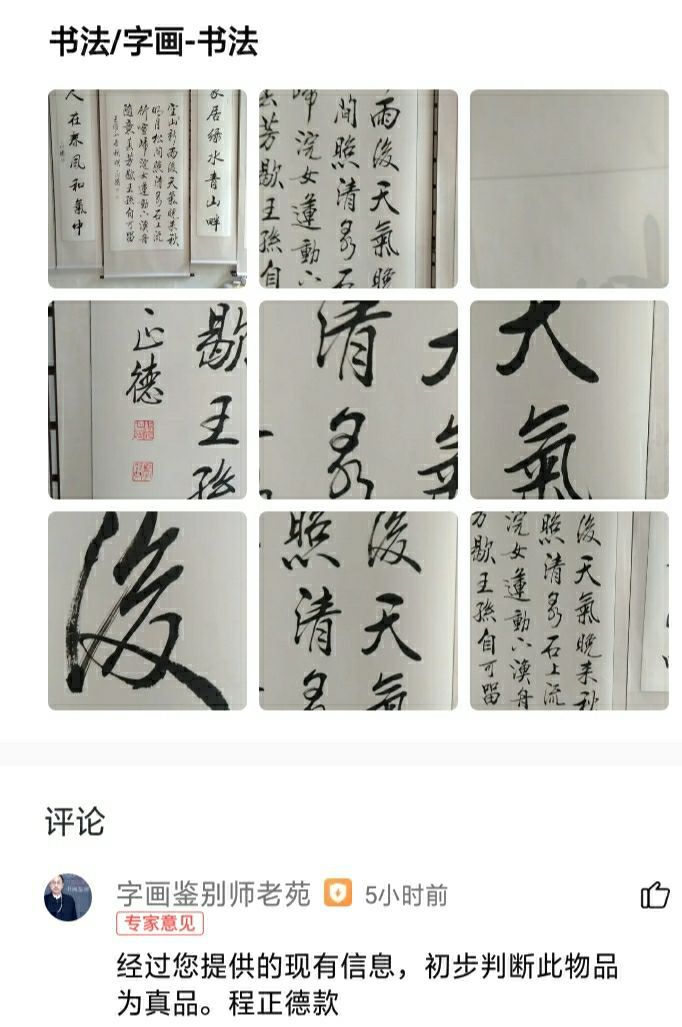 书法/字画-书法
人在春风和氣中
空山新雨後天氣晚来秋
明月松间照清泉石上流
竹喧归浣女莲動下渔舟
随意春芳歇王孫自可留
家居绿水青山畔
雨後天氣晚
间照清泉石
归浣女莲動下
芳歇王孫自
歇王孫
正德
清泉
天氣
天氣
後
後天氣
照清泉
後天氣晚来秋
照清泉石上流
浣女莲動下渔舟
芳歇王孫自可留
评论
字画鉴别师老苑 5小时前
专家意见
经过您提供的现有信息，初步判断此物品
为真品。程正德款